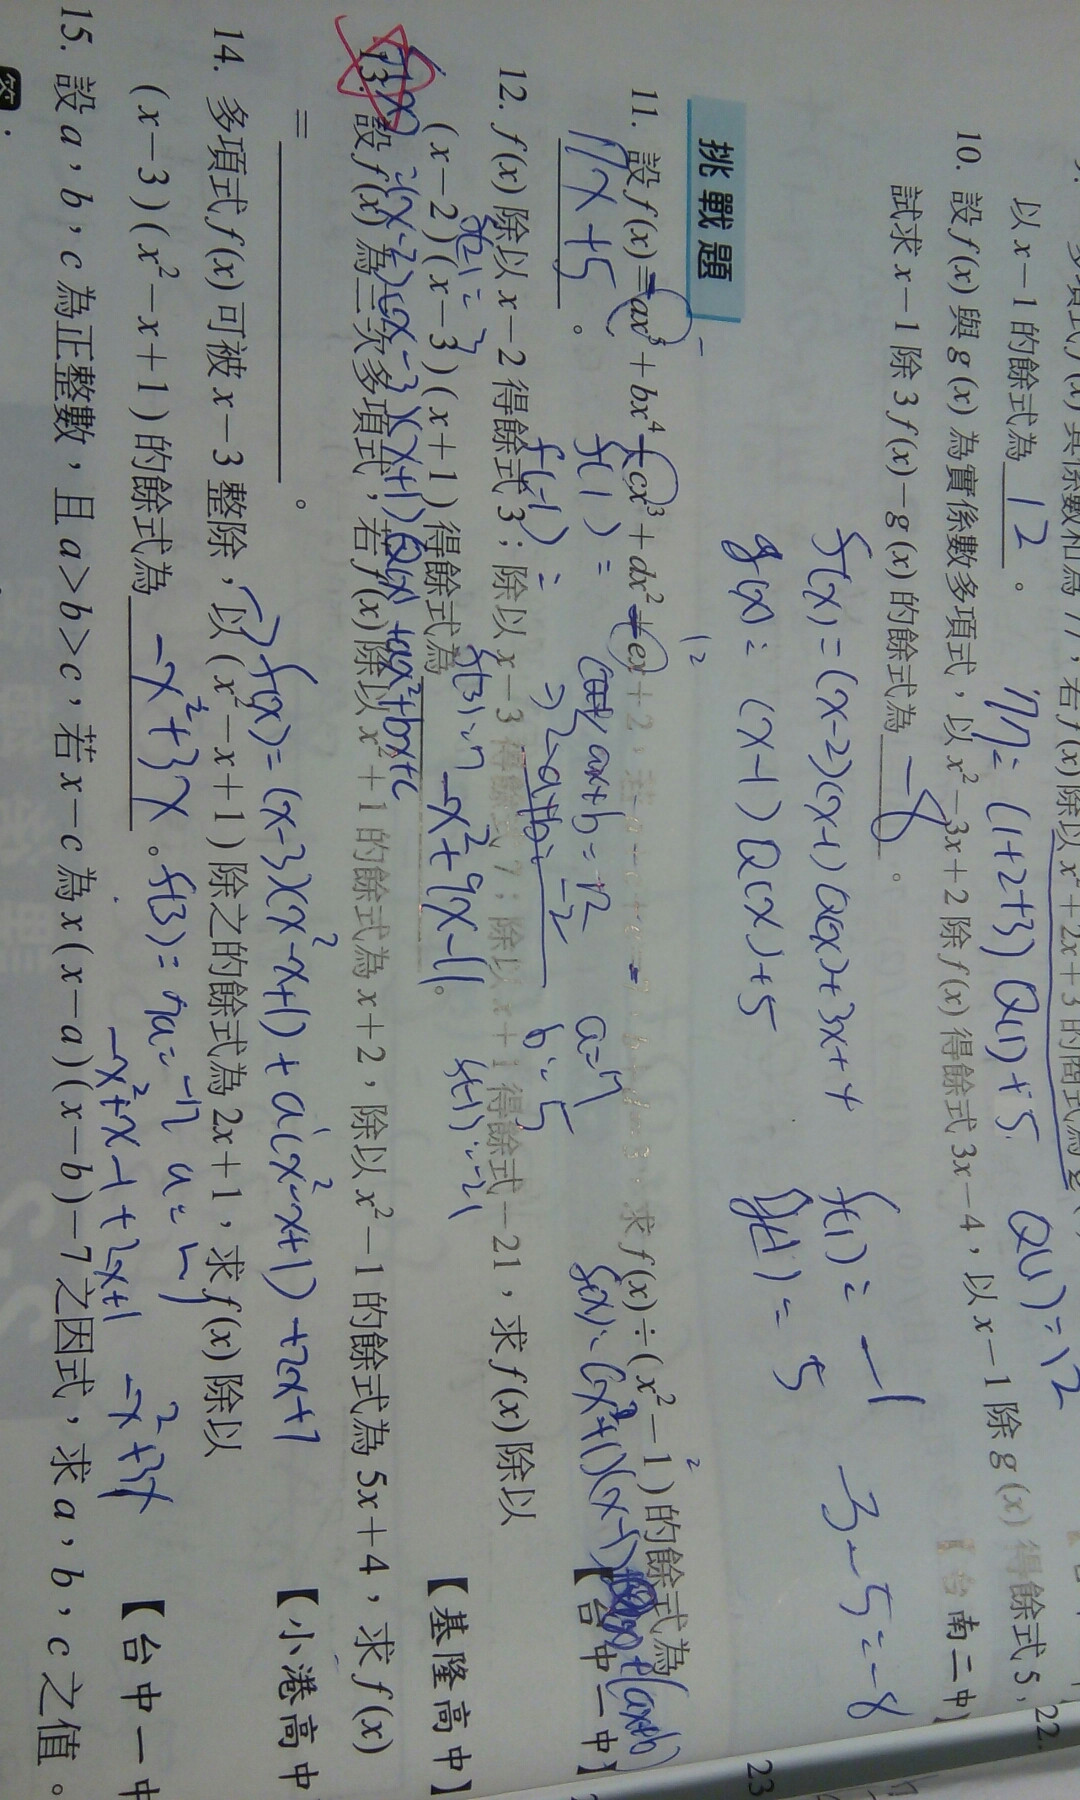 以 x-1 的餘式為 12 。
77=(1+2+3)Q(1)+5 Q(1)=12
10. 設 f(x) 與 g(x) 為實係數多項式,以 x²-3x+2 除 f(x) 得餘式 3x-4,以 x-1 除 g(x) 得餘式 5,
試求 x-1 除 3f(x)-g(x) 的餘式為 -8 。
南二中】
f(x)=(x-2)(x-1)Q(x)+3x+4 f(1)=-1 3-5=-8
g(x)=(x-1)Q(x)+5 g(1)=5
挑戰題
11. 設 f(x)=ax⁵+bx⁴+cx³+dx²+ex+2, 求 f(x)÷(x²-1) 的餘式為
7x+5 。
【台中一中】
f(1)= ax+b=12 a=7
f(-1)= -a+b=-2 b=5
12. f(x) 除以 x-2 得餘式 3;除以 x-3 得餘式 7;除以 x+1 得餘式 -21,求 f(x) 除以
(x-2)(x-3)(x+1) 得餘式為 -x²+9x-11 。
【基隆高中】
f(x)=(x-2)(x-3)(x+1)Q(x)+ax²+bx+c
f(3)=7
f(-1)=-21
13. 設 f(x) 為三次多項式,若 f(x) 除以 x²+1 的餘式為 x+2,除以 x²-1 的餘式為 5x+4,求 f(x)
= 。
【小港高中
f(x)=(x-3)(x²-x+1)+a(x²-x+1)+2x+1
14. 多項式 f(x) 可被 x-3 整除,以 (x²-x+1) 除之的餘式為 2x+1,求 f(x) 除以
(x-3)(x²-x+1) 的餘式為 -x²+3x 。
【台中一中
f(3)=7a=-7
-x²+x-1+2x+1 -x²+3x
15. 設 a,b,c 為正整數,且 a>b>c,若 x-c 為 x(x-a)(x-b)-7 之因式,求 a,b,c 之值。
答:
22.
23